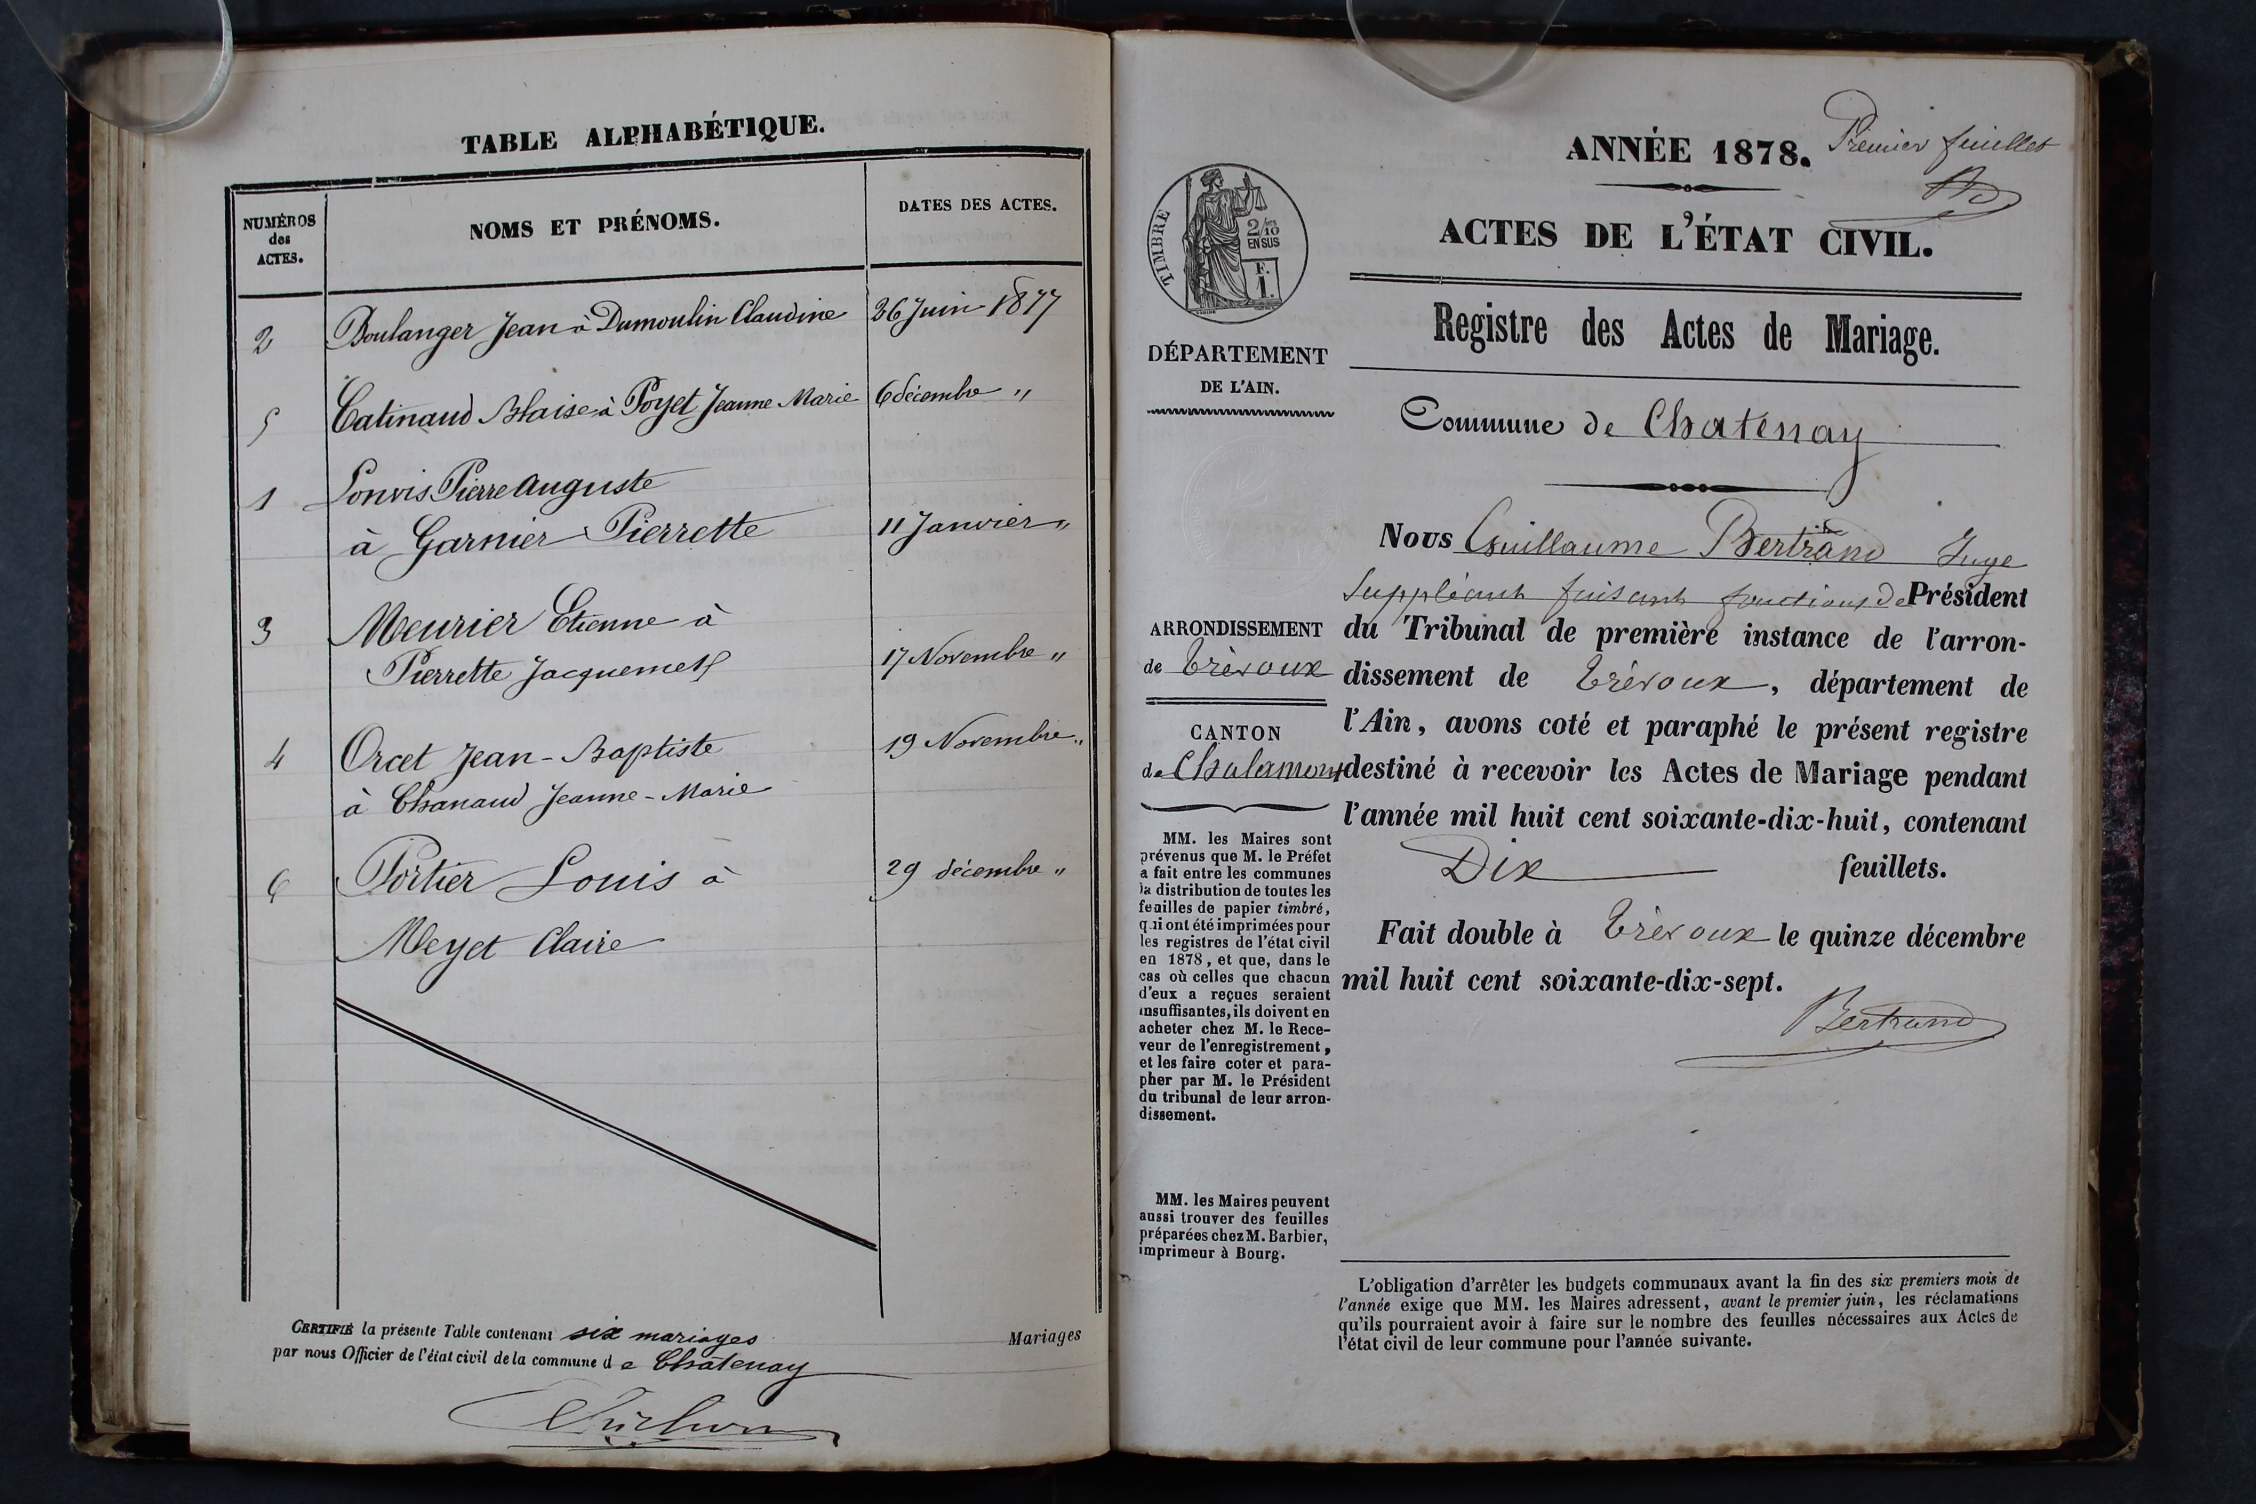 TABLE ALPHABÉTIQUE.
NUMÉROS
des
ACTES.
NOMS ET PRÉNOMS.
DATES DES ACTES.
2 Boulanger Jean à Dumoulin Claudine 26 Juin 1877
5 Catinaud Blaise à Poyet Jeanne Marie 6 décembre "
1 Lonvis Pierre Auguste
à Garnier Pierrette 11 Janvier "
3 Meurier Etienne à
Pierrette Jacquemet 17 Novembre "
4 Orcet Jean-Baptiste 19 Novembre "
à Chanaud Jeanne-Marie
6 Portier Louis à 29 décembre "
Meyet Claire
CERTIFIÉ la présente Table contenant six mariages Mariages
par nous Officier de l'état civil de la commune de Chatenay
ANNÉE 1878.
Premier feuillet
ACTES DE L'ÉTAT CIVIL.
TIMBRE
2/10
EN SUS
F.
1.
Registre des Actes de Mariage.
DÉPARTEMENT
DE L'AIN.
Commune de Chatenay
ARRONDISSEMENT
de Trévoux
CANTON
de Chalamont
MM. les Maires sont
prévenus que M. le Préfet
a fait entre les communes
la distribution de toutes les
feuilles de papier timbré,
qui ont été imprimées pour
les registres de l'état civil
en 1878, et que, dans le
cas où celles que chacun
d'eux a reçues seraient
insuffisantes, ils doivent en
acheter chez M. le Rece-
veur de l'enregistrement,
et les faire coter et para-
pher par M. le Président
du tribunal de leur arron-
dissement.
MM. les Maires peuvent
aussi trouver des feuilles
préparées chez M. Barbier,
imprimeur à Bourg.
Nous Guillaume Bertrand Juge
Suppléant faisant fonctions de Président
du Tribunal de première instance de l'arron-
dissement de Trévoux, département de
l'Ain, avons coté et paraphé le présent registre
destiné à recevoir les Actes de Mariage pendant
l'année mil huit cent soixante-dix-huit, contenant
Dix feuillets.
Fait double à Trévoux le quinze décembre
mil huit cent soixante-dix-sept.
Bertrand
L'obligation d'arrêter les budgets communaux avant la fin des six premiers mois de
l'année exige que MM. les Maires adressent, avant le premier juin, les réclamations
qu'ils pourraient avoir à faire sur le nombre des feuilles nécessaires aux Actes de
l'état civil de leur commune pour l'année suivante.